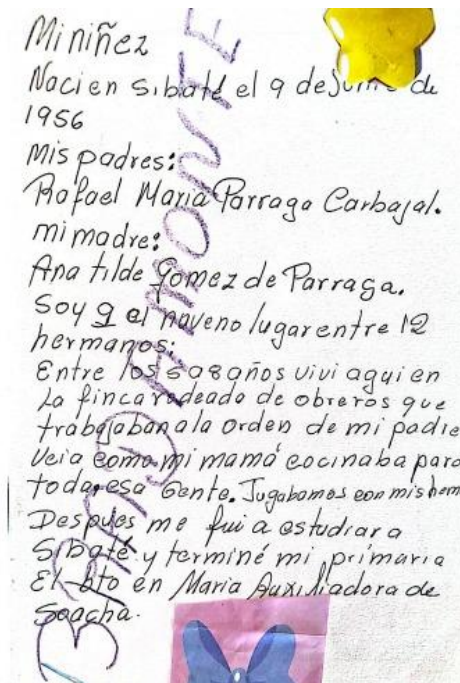 Mi niñez
Naci en Sibaté el 9 de Junio de
1956
Mis padres:
Rafael Maria Parraga Carbajal.
mi madre:
Ana tilde Gomez de Parraga.
Soy 9 el noveno lugar entre 12
hermanos:
Entre los 5 a 8 años vivi aqui en
La finca rodeada de obreros que
trabajaban a la orden de mi padre
Veia como mi mamá cocinaba para
toda esa Gente. Jugabamos con mis herm
Despues me fui a estudiar a
Sibaté y terminé mi primaria
El bto en Maria Auxiliadora de
Soacha.